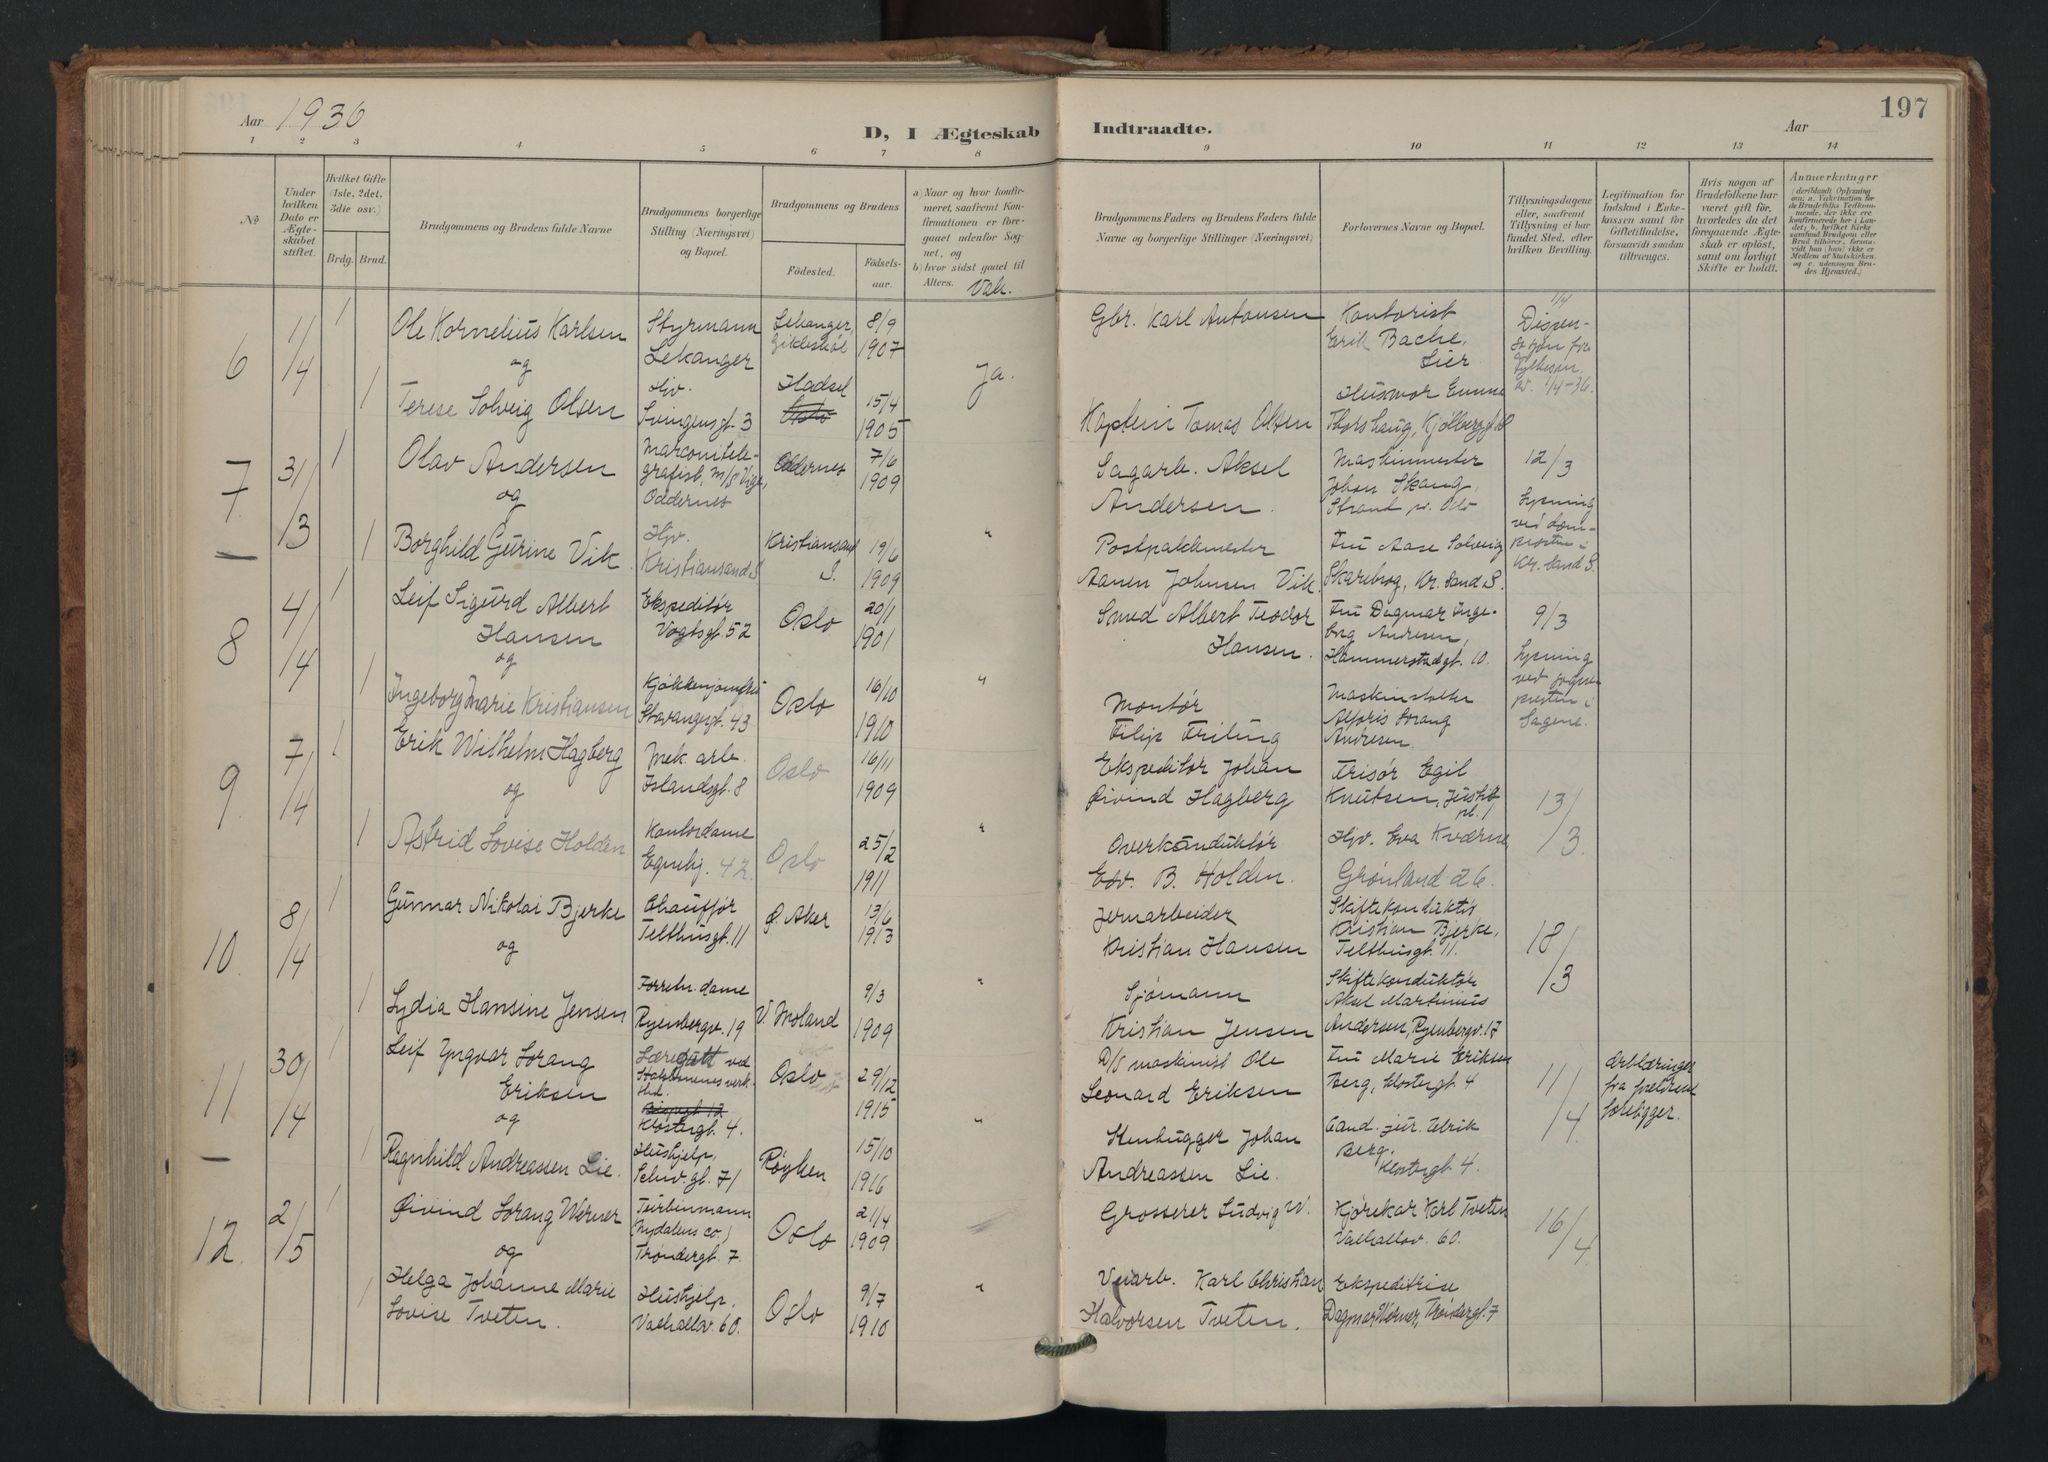 Aar 1936
D, I Ægteskab
1 2 3 4 5 6 7 8
No
Under hvilken Dato er Ægteskabet stiftet.
Hvilket Gifte (1ste, 2det, 3die osv.)
Brdg.
Brud.
Brudgommens og Brudens fulde Navne
Brudgommens borgerlige Stilling (Næringsvei) og Bopæl.
Brudgommens og Brudens
Födested.
Födselsaar.
a) Naar og hvor konfirmeret, saafremt Konfirmationen er foregaaet udenfor Sognet, og
b) hvor sidst gaaet til Alters.
Vak.
6
1/4
1
Ole Kornelius Karlsen
og
1
Terese Solveig Olsen
Styrmann
Lekanger
Hjv.
Svingensgt. 3
Lekanger,
Gildeskål
Hadsel
Oslo
8/9
1907
15/4
1905
Ja.
7.
31/3
1
Olav Andersen
og
1
Borghild Gurine Vik
Marconitele-
grafist, m/s Vige,
Oddernes
Hjv.
Kristiansand S.
Oddernes
Kristiansand
S.
7/6
1909
19/6
1909
"
8
4/4
1
Leif Sigurd Albert
Hansen
og
1
Ingeborg Marie Kristiansen
Ekspeditør
Vogtsgt. 52
Kjøkkenjomfru
Stavangergt. 43
Oslo
Oslo
20/1
1901
16/10
1910
"
9.
7/4
1
Erik Wilhelm Hagberg
og
1
Astrid Lovise Holden
Mek. arb.
Islandsgt. 8
Kontordame
Egnehj. 42.
Oslo
Oslo
16/11
1909
25/2
1911
"
10.
8/4
1
Gunnar Nikolai Bjerke
og
1
Lydia Hansine Jensen
Chauffør
Telthusgt. 11
Forretn. dame
Ryenbergv. 19
Ø. Aker
V. Moland
13/6
1913
9/3
1909
"
11
30/4
1
Leif Yngvar Sorang
Eriksen
og
1
Ragnhild Andreassen Lie.
ved
Klostergt. 4.
Hushjelp,
Schv. gt. 71
Oslo
Røyken
29/12
1915
15/10
1916
"
12.
2/5
1
Øivind Sorang Werner
og
1
Helga Johanne Marie
Lovise Tveten.
Turbinmann
(Nydalens co.)
Trøndergt. 7
Hushjelp.
Valhallav. 60.
Oslo
Oslo
21/4
1909
9/7
1910
"
197
Indtraadte.
Aar
9 10 11 12 13 14
Brudgommens Faders og Brudens Faders fulde Navne og borgerlige Stillinger (Næringsvei)
Forlovernes Navne og Bopæl.
Tillysningsdagene eller, saafremt Tillysning ei har fundet Sted, efter hvilken Bevilling.
Legitimation for Indskud i Enkekassen samt for Giftetilladelse, forsaavidt saadan tiltrænges.
Hvis nogen af Brudefolkene har været gift för, hvorledes da det foregaaende Ægteskab er oplöst, samt om lovligt Skifte er holdt.
Anmærkninger
Gbr. Karl Antonsen
Kaptein Tomas Olsen
Kontorist
Erik Bache,
Lier
Husmor Emma
Thorshaug, Kjølberggt.
1/4
Dispen-
sasjon fra
Fylkesm.
av. 1/4-36.
Sagarb. Aksel
Andersen.
Postpakkmester
Aanen Johnsen Vik
Maskinmester
Johan Skaug,
Strand pr. Oslo
Fru Aase Solveig
Skarebrog, Kr. Sand S.
12/3
Lysning
ved dom-
prosten i
Kr. Sand S.
Smed Albert Teodor
Hansen.
Montør
Filip Friling
Fru Dagmar Inge-
borg Andresen,
Hammerstadgt. 10.
Maskinsetter
Alforis Sorang
Andresen.
9/3
Lysning
ved sogne-
presten i
Sagene.
Ekspeditør Johan
Øivind Hagberg
Overkonduktør
Edv. B. Holden.
Frisør Egil
Knutsen,
Hjv. Eva Kværne
Grønland 26.
13/3
Jernarbeider
Kristian Hansen
Sjømann
Kristian Jensen
Skiftekonduktør
Kristian Bjerke,
Telthusgt. 11.
Skiftekonduktør
Aksel Martinius
Andersen, Ryenbergv. 17
18/3
D/s maskinist Ole
Leonard Eriksen
Stenhugger Johan
Andreassen Lie.
Fru Marie Eriksen
Berg, Klostergt. 4
Cand. jur. Ulrik
Berg,
Klostergt. 4.
11/4
Erklæringer
fra foreldrene
foreligger.
Grosserer Ludvig W.
Karl Christian
Halvorsen Tveten.
Kjørekar Karl Tveten
Valhallav. 60.
Ekspeditrise
Dagmar Werner, Trøndergt. 7
16/4